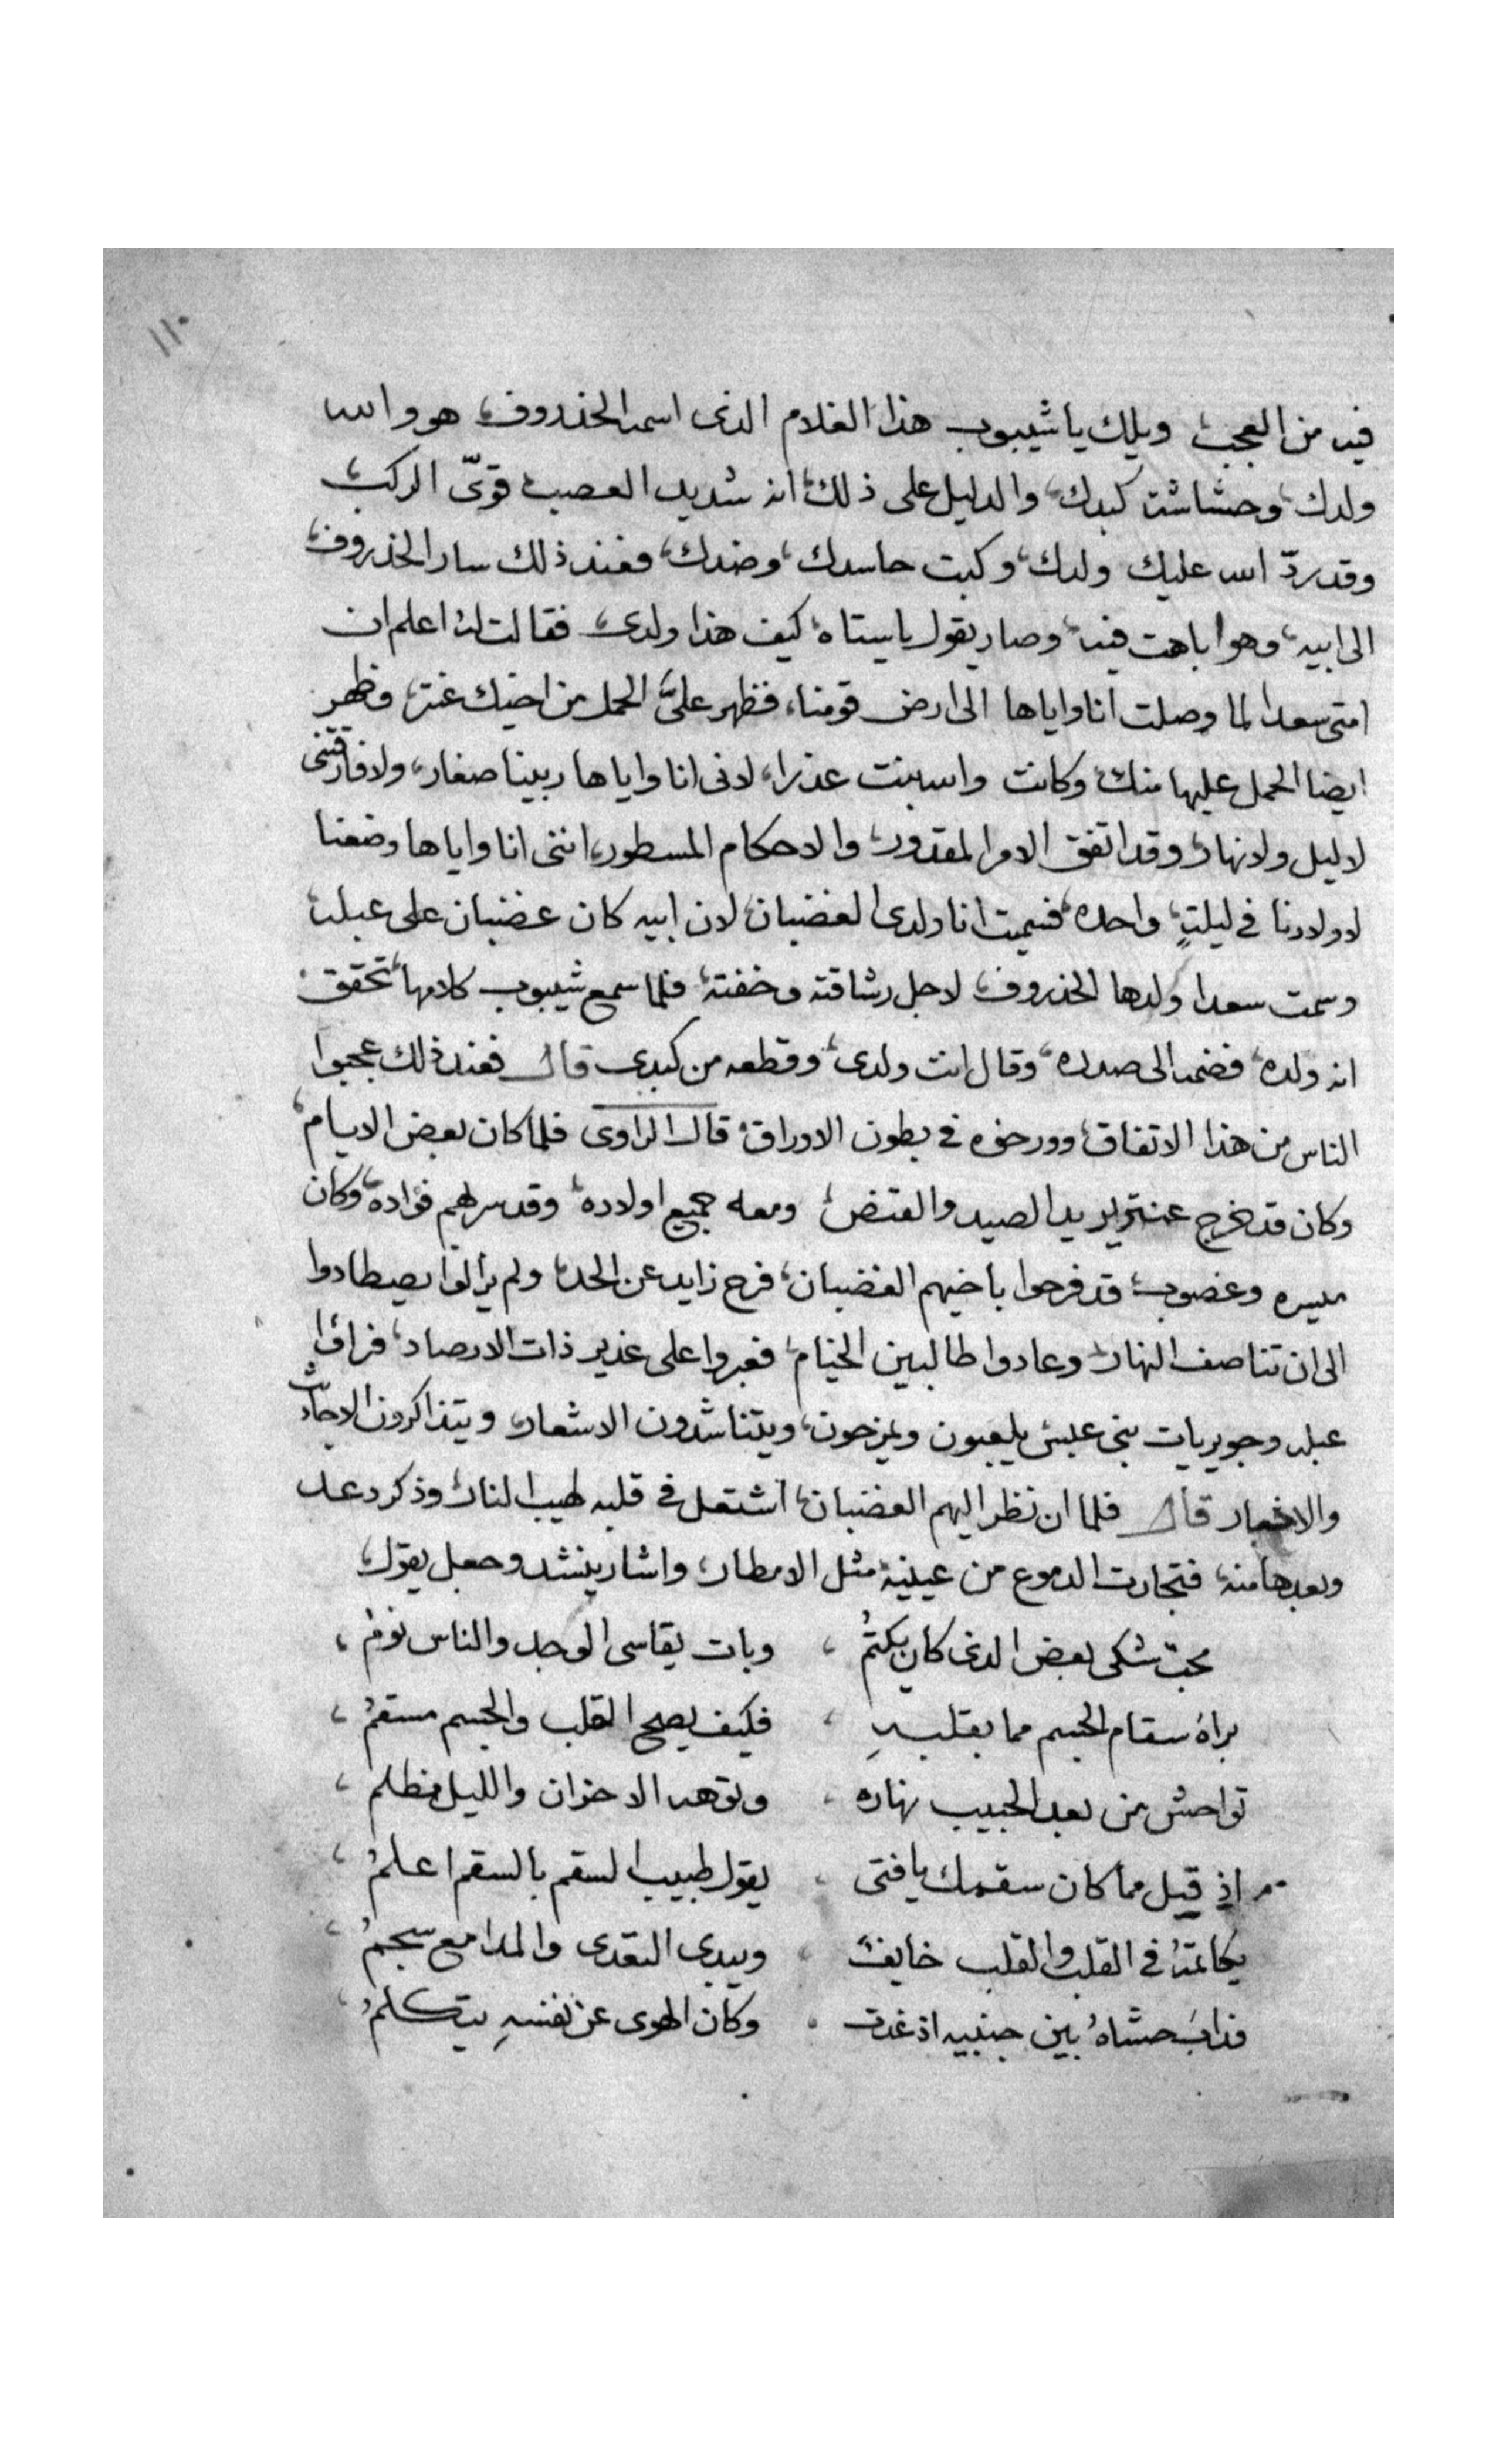 ١١٠
فيه من العجب، ويلك يا شيبوب هذا الغلام الذى اسمه الخذروف، هو والله
ولدك، وحشاشة كبدك، والدليل على ذلك، انه شديد العصب، قوىّ الركب،
وقد ردّ الله عليك ولدك، وكبت حاسدك، وضدك، فعند ذلك سار الخذروف،
الى ابيه، وهوا باهت فيه، وصار يقول ياستاه، كيف هذا ولدى، فقالت له اعلم ان
امتى سعدا لما وصلت انا واياها الى ارض قومنا، فظهر علىَّ الحمل من اخيك عنتر، وظهر
ايضا الحمل عليها منك، وكانت والله بنت عذرا، لانى انا واياها ربينا صغار، ولا فارقتنى
لا ليل ولا نهار، وقد اتفق الامر المقدور، والاحكام المسطور، اننى انا واياها وضعنا
لاولادنا فى ليلةٍ، واحده، فسميت انا ولدى الغضبان، لان ابيه كان غضبان على عبله،
وسمت سعدا ولدها الخذروف، لاجل رشاقته وخفته، فلما سمع شيبوب كلامها، تحقق،
انه ولده، فضمه الى صدره، وقال انت ولدى، وقطعه من كبدى قال فعند ذلك عجبوا
الناس من هذا الاتفاق، وورخوه فى بطون الاوراق، قال الراوى فلما كان بعض الايام،
وكان قد خرج عنتر يريد الصيد والقنص، ومعه جميع اولاده، وقد سر لهم فؤاده، وكان
ميسره وغصوب، قد فرحوا باخيهم الغضبان، فرح زايد عن الحد، ولم يزالوا يصيطادوا
الى ان تناصف النهار، وعادوا طالبين الخيام، فعبروا على غدير ذات الارصاد، فراؤا
عبله وجويريات بنى عبس يلعبون ويمزحون، ويتناشدون الاشعار، ويتذاكرون الاحاديث
والاخبار قال فلما ان نظر اليهم الغضبان، اشتعل فى قلبه لهيب النار، وذكر دعد
وبعدها منه، فتجارت الدموع من عينيه، مثل الامطار، واشار ينشد وجعل يقول،
محبّ شكى بعض الذى كان يكتمُ ، وبات يقاسى الوجد والناس نومُ ،
براهُ سقام الجسم مما بقلبهِ ، فكيف يصح القلب والجسم مسقمُ ،
تواحش من بعد الحبيب نهاره ، الاحزان والليل مظلم ،
اذ قيل مما كان سقمك يافتى ، يقول طبيب السقم بالسقم اعلمُ ،
يكاتمهُ فى القلب والقلب خايف ، ويبدى والمدامع سجمُ ،
فذابَ حشاهُ بين جنبيه اذ غدت ، وكان الهوى عن نفسهِ يتكلمُ ،